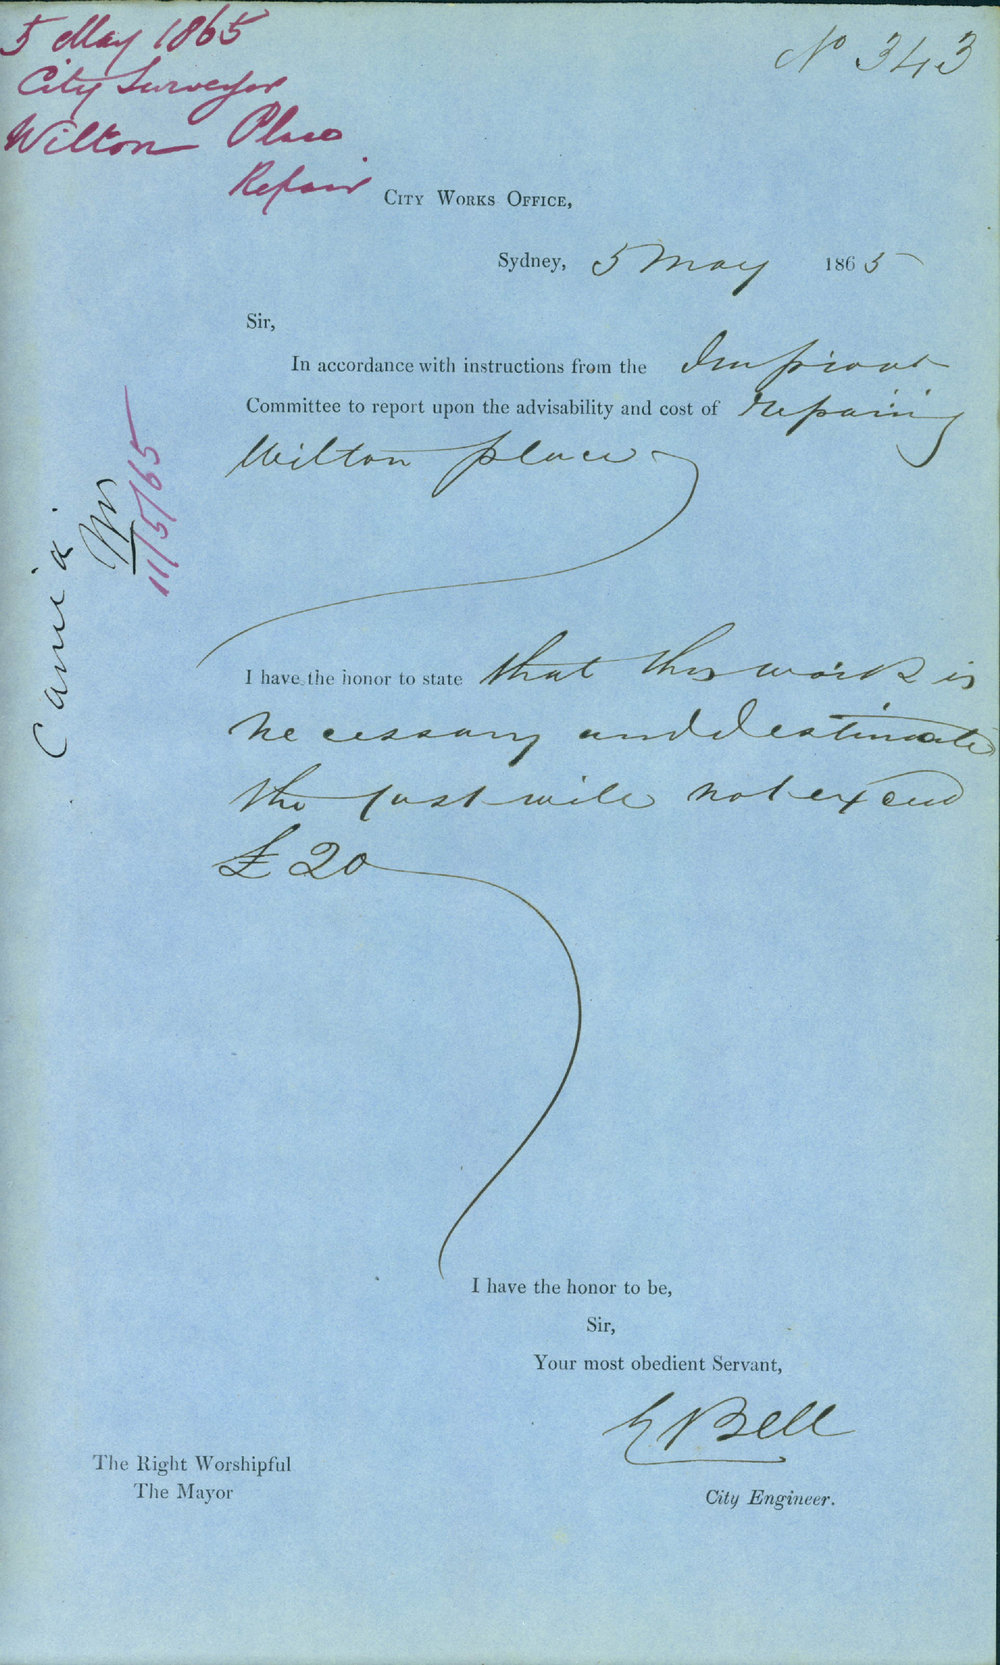 5 May 1865
City Surveyor
Wilton Place
Repair
No 343
City Works Office,
Sydney, 5 May 1865
Sir,
In accordance with instructions from the Improvt
Committee to report upon the advisability and cost of repairing
Wilton place
I have the honor to state that this work is
necessary and I estimate
the cost will not exceed
£20
Carrid
11/5/65
I have the honor to be,
Sir,
Your most obedient Servant,
E Bell
City Engineer.
The Right Worshipful
The Mayor